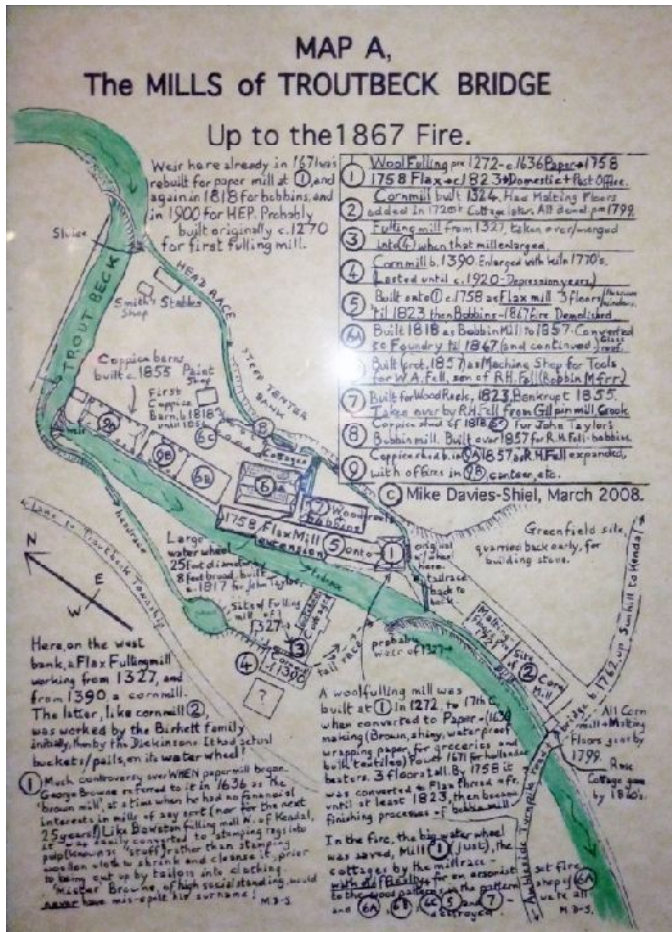 MAP A,
The MILLS of TROUTBECK BRIDGE
Up to the 1867 Fire.
Weir here already in 1671 was
rebuilt for paper mill at ①, and
again in 1818 for bobbins, and
in 1900 for HEP. Probably
built originally c.1270
for first fulling mill.
① Wool Fulling pre 1272-c.1636 Paper→1758
1758 Flax→c1823→Domestic+Post Office.
② Cornmill built 1324. Had Malting Floors
added in 1720+ Cottage later. All gone pre 1799.
③ Fulling mill from 1327, taken over/merged
into ④ when that mill enlarged.
④ Cornmill b. 1390. Enlarged with kiln 1770's.
(Lasted until c.1920-Depression years)
⑤ Built onto ① c.1758 as Flax mill 3 floors
'til 1823 then Bobbins-1867 Fire Demolished
6A Built 1818 as Bobbin Mill to 1857. Converted
to Foundry til 1867 (and continued)
Built (prob. 1857) as Machine Shop for Tools
for W.A. Fell, son of R.H. Fell (Bobbin Mfrr)
⑦ Built for Wood Reels, 1823, Bankrupt 1855.
Taken over by R.H. Fell from Gilpin mill, Crook
⑧ Coppice shed of 1818 for John Taylors
Bobbin mill. Built over 1857 for R.H. Fell-bobbins.
⑨ Coppice shed b. in 9A 1857 as R.H. Fell expanded,
with offices in 9B, canteen, etc.
© Mike Davies-Shiel, March 2008.
Sluice
HEAD RACE
TROUT BECK
Smith's Shop
Stables
STEEP TENTER BANK
Coppice barns
built c. 1855
Paint Shop
First
Coppice
Barn, b 1818
6C
⑧
Cottages
9A
9B
6B
6A
⑦ Wood
bobbins
Weir
headrace
1758 Flax Mill ⑤ onto
extension
①
original
w/wheel
here.
tailrace
back to
beck
Greenfield site,
quarried back early, for
building stone.
Lane to Troutbeck Township
N
E
W
Large
water wheel
25 foot diameter
8 feet broad, built
c. 1817 for John Taylor.
tailrace
Site of Fulling
mill of
1327
③
④
Cornmill
of 1390
Cottages
tail race
?
probable
weir of 1327
Malting
Floors
Site
of ② Corn
Mill
bridge b. 1762, up Sunhill to Kendal
All Corn
mill+Malting
Floors gone by
1799.
Rose
Cottage gone
by 1860's.
Ambleside Turnpike road
Here, on the west
bank, a Flax Fulling mill
working from 1327, and
from 1390 a cornmill.
The latter, like cornmill ②,
was worked by the Birkett family
initially, then by the Dickinsons. It had actual
buckets/pails, on its water wheel!
① Much controversy over WHEN papermill began.
George Browne referred to it in 1636 as the
'brown mill', at a time when he had no financial
interests in mills of any sort (nor for the next
25 years!) Like Bowston fulling mill N. of Kendal,
it was easily converted to 'stamping' rags into
pulp (known as 'stuff') rather than stamping
woollen cloth to shrink and cleanse it, prior
to being cut up by tailors into clothing.
'Mister' Browne, of high social standing, would
never have mis-spelt his surname! M.D-S.
A wool fulling mill was
built at ① in 1272 to 17thC.
when converted to Paper-(1636)
making (Brown, shiny, waterproof
wrapping paper for groceries and
built textiles) Post 1671 for hollander
beaters. 3 floors tall. By 1758 it
was converted to Flax thread mfr.
until at least 1823, then became
finishing processes of bobbin mill
In the fire, the big water wheel
was saved, Mill ① (just), the
cottages by the millrace-
for an arsonist set fire
to the wood patterns in the pattern shop of 6A
and 6A, 6B, 6C, ⑤ and ⑦ - were all
destroyed. M.D-S.